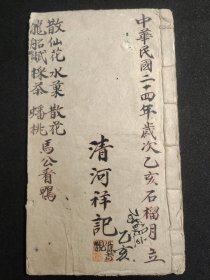 中華民國二十四年歲次乙亥石榴月立
清河祥記
乙亥
散仙花水菓 散花
龍船 採茶 蟠桃 馬公看鴨